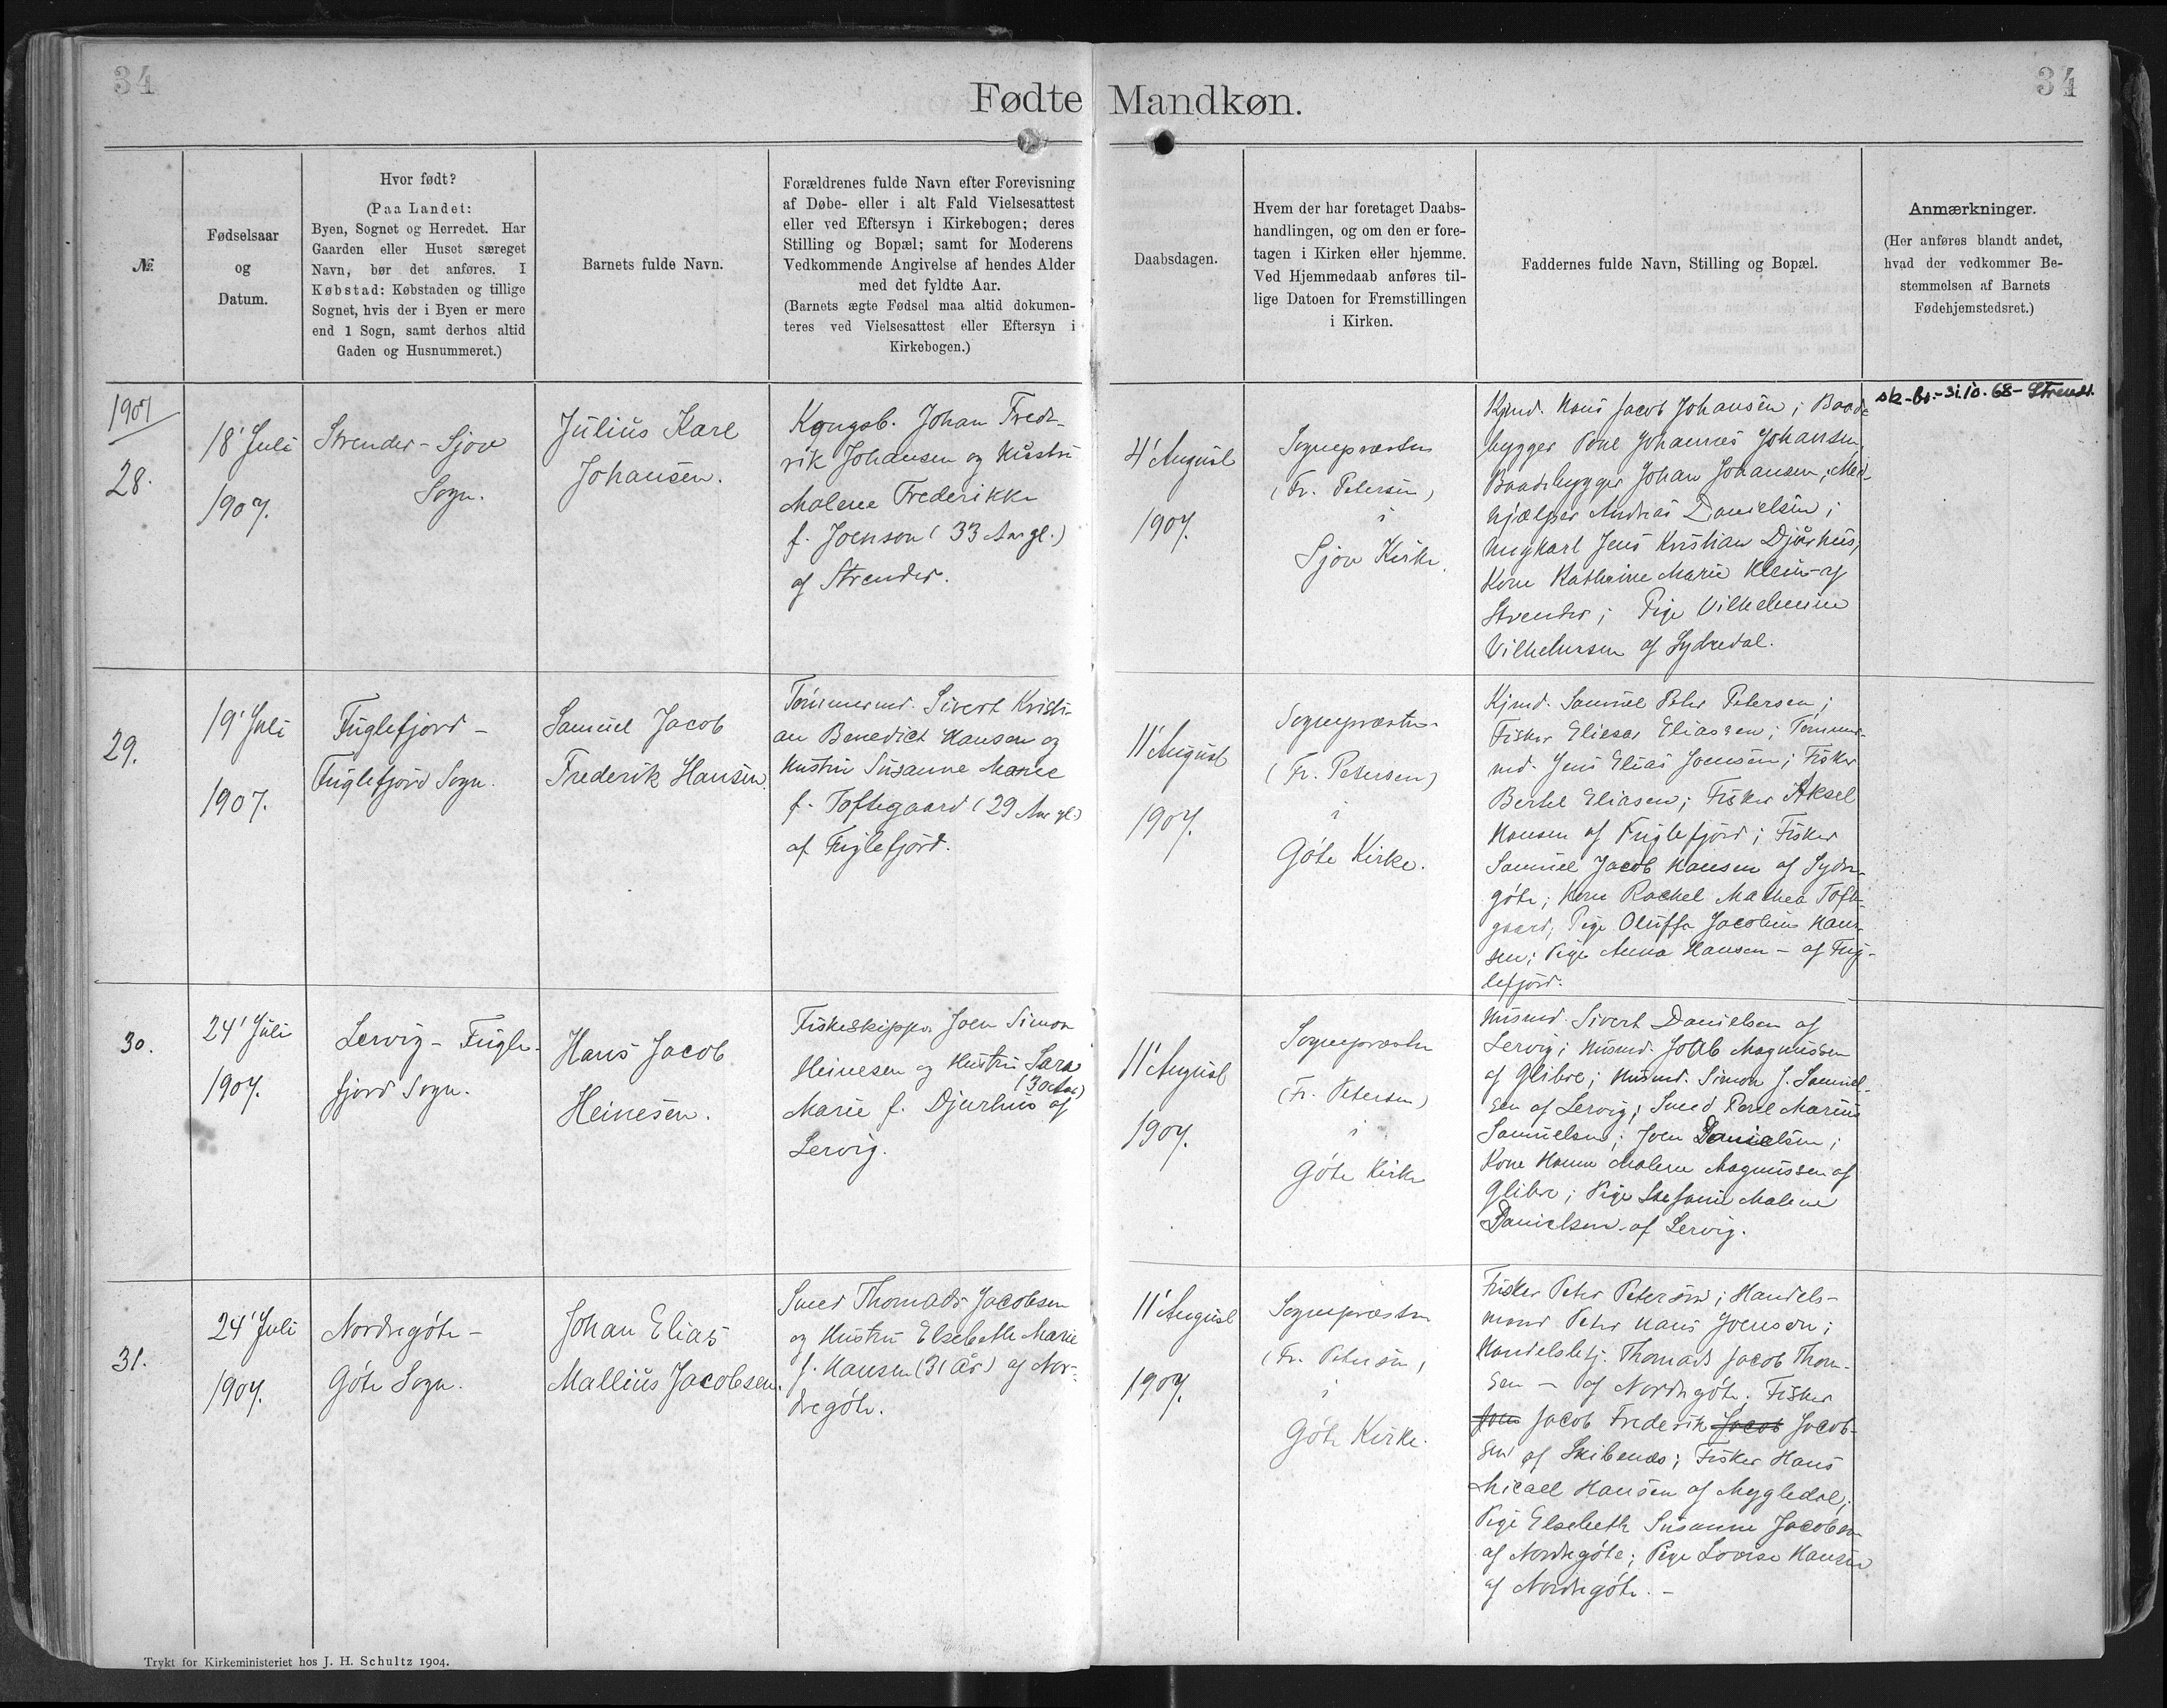 34
34
Fødte Mandkøn.
№
Fødselsaar
og
Datum.
Hvor født?
(Paa Landet:
Byen, Sognet og Herredet. Har
Gaarden eller Huset særeget
Navn, bør det anføres. I
Købstad: Købstaden og tillige
Sognet, hvis der i Byen er mere
end 1 Sogn, samt derhos altid
Gaden og Husnummeret.)
Barnets fulde Navn.
Forældrenes fulde Navn efter Forevisning
af Døbe- eller i alt Fald Vielsesattest
eller ved Eftersyn i Kirkebogen; deres
Stilling og Bopæl; samt for Moderens
Vedkommende Angivelse af hendes Alder
med det fyldte Aar.
(Barnets ægte Fødsel maa altid dokumen-
teres ved Vielsesattest eller Eftersyn i
Kirkebogen.)
Daabsdagen.
Hvem der har foretaget Daabs-
handlingen, og om den er fore-
tagen i Kirken eller hjemme.
Ved Hjemmedaab anføres til-
lige Datoen for Fremstillingen
i Kirken.
Faddernes fulde Navn, Stilling og Bopæl.
Anmærkninger.
(Her anføres blandt andet,
hvad der vedkommer Be-
stemmelsen af Barnets
Fødehjemstedsret.)
1907
28.
18' Juli
1907.
Strender - Sjov
Sogn.
Julius Karl
Johansen.
Kongsb. Johan Fred-
rik Johansen og Hustru
Malene Frederikke
f. Joenson (33 Aar gl.)
af Strender.
4' August
1907.
Sognepræsten
(Fr. Petersen)
i
Sjov Kirke.
Kjmd. Hans Jacob Johansen; Baade
bygger Poul Johannes Johansen,
Baadebygger Johan Johansen; Med-
hjælper Andreas Danielsen;
Ungkarl Jens Kristian Djurhus;
Kone Kathrine Marie Klein - af
Strender; Pige Vilhelmine
Vilhelmsen af Sydredal.
sk-br.- 31.10.68 - Strend.
29.
19' Juli
1907.
Fuglefjord -
Fuglefjord Sogn.
Samuel Jacob
Frederik Hansen.
Tømmermd. Sivert Kristi-
an Benedict Hansen og
Hustru Susanne Marie
f. Toftegaard (29 Aar gl.)
af Fuglefjord.
11' August
1907.
Sognepræsten
(Fr. Petersen)
i
Göte Kirke.
Kjmd. Samuel Peter Petersen;
Fisker Eliesar Eliassen; Tømmer-
md. Jens Elias Joensen; Fisker
Berthel Eliasen; Fisker Aksel
Hansen af Fuglefjord; Fisker
Samuel Jacob Hansen af Sydre-
göte; Kone Rachel Mathea Tofte-
gaard; Pige Oluffa Jacobine Han-
sen; Pige Anna Hansen - af Fug-
lefjord.
30.
24' Juli
1907.
Lervig - Fugle-
fjord Sogn.
Hans Jacob
Heinesen.
Fiskeskipper Joen Simon
Heinesen og Hustru Sara
(30 Aar)
Marie f. Djurhus af
Lervig.
11' August
1907.
Sognepræsten
(Fr. Petersen)
i
Göte Kirke
Husmd. Sivert Danielsen af
Lervig; Husmd. Joab Magnussen
af Glibre; Husmd. Simon J. Samuel-
sen af Lervig; Smed Poul Marius
Samuelsen; Joen Danielsen;
Kone Hanna Malene Magnussen af
Glibre; Pige Stefanie Malene
Danielsen - af Lervig.
31.
24' Juli
1907.
Nordregöte -
Göte Sogn.
Johan Elias
Mallius Jacobsen.
Smed Thomads Jacobsen
og Hustru Elsebeth Marie
f. Hansen (31 År) af Nor-
dregöte.
11' August
1907.
Sognepræsten
(Fr. Petersen)
i
Göte Kirke.
Fisker Peter Petersen; Handels-
mand Peter Hans Joensen;
Handelsbetj. Thomads Jacob Thom-
sen - af Nordregöte; Fisker
Joen Jacob Frederik Jacob Jacob-
sen af Skibenæs; Fisker Hans
Micael Hansen af Mygledal;
Pige Elsebeth Susanne Jacobsen
af Nordregöte; Pige Lovise Hansen
af Nordregöte. -
Trykt for Kirkeministeriet hos J. H. Schultz 1904.